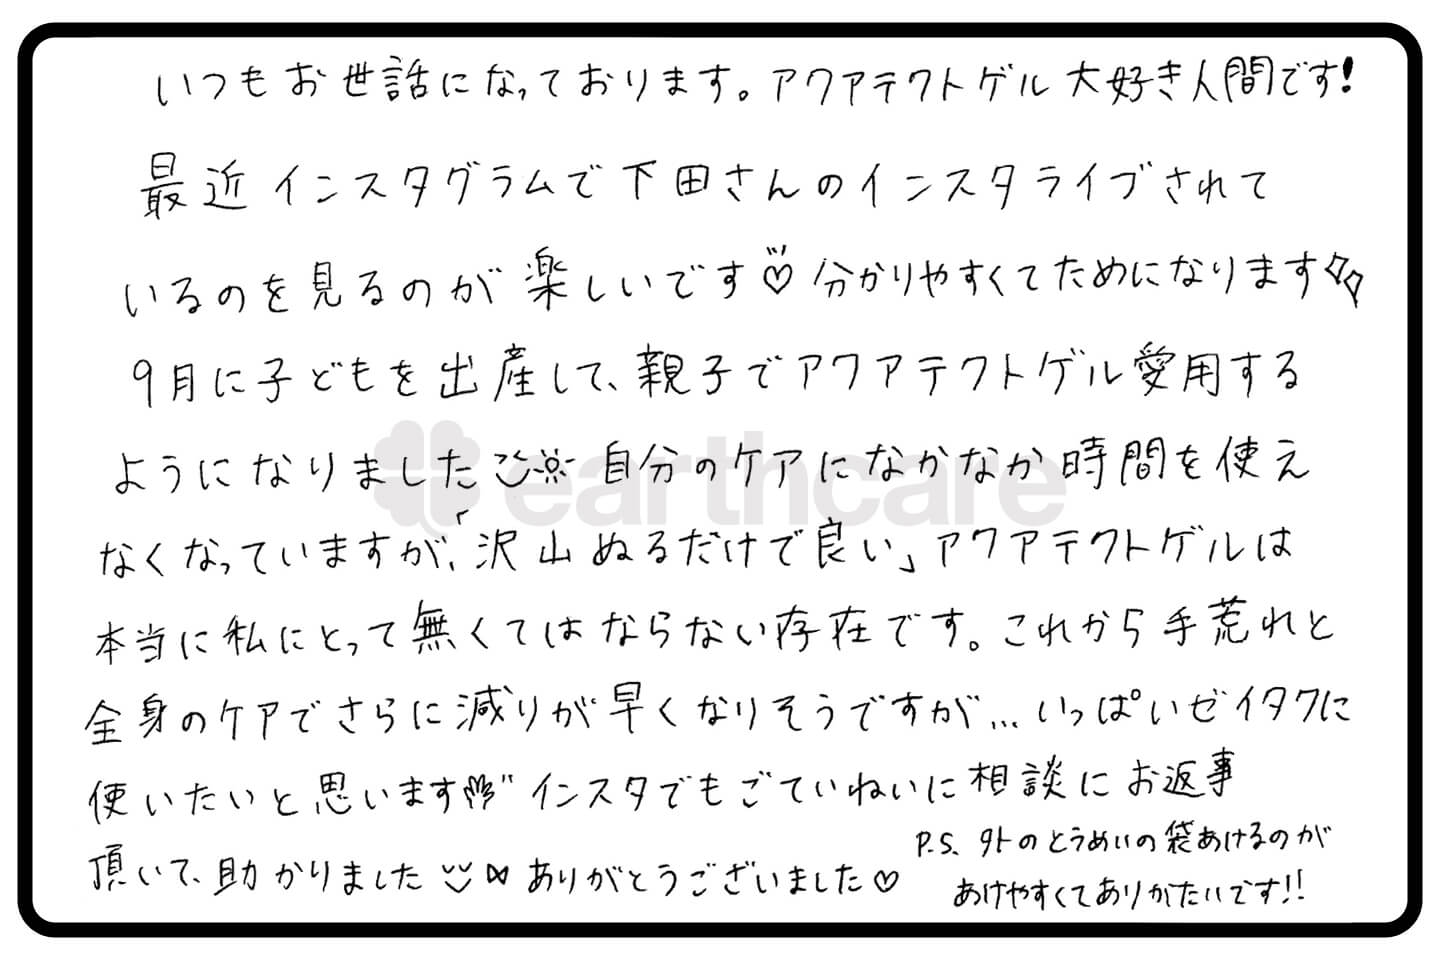 いつもお世話になっております。アクアテクトゲル大好き人間です!
最近インスタグラムで下田さんのインスタライブされて
いるのを見るのが楽しいです♡分かりやすくてためになります
9月に子どもを出産して、親子でアクアテクトゲル愛用する
ようになりました 自分のケアになかなか時間を使え
なくなっていますが、「沢山ぬるだけで良い」アクアテクトゲルは
本当に私にとって無くてはならない存在です。これから手荒れと
全身のケアでさらに減りが早くなりそうですが...いっぱいゼイタクに
使いたいと思います インスタでもごていねいに相談にお返事
頂いて、助かりました ありがとうございました♡
P.S. 外のとうめいの袋あけるのが
あけやすくてありがたいです!!
earthcare